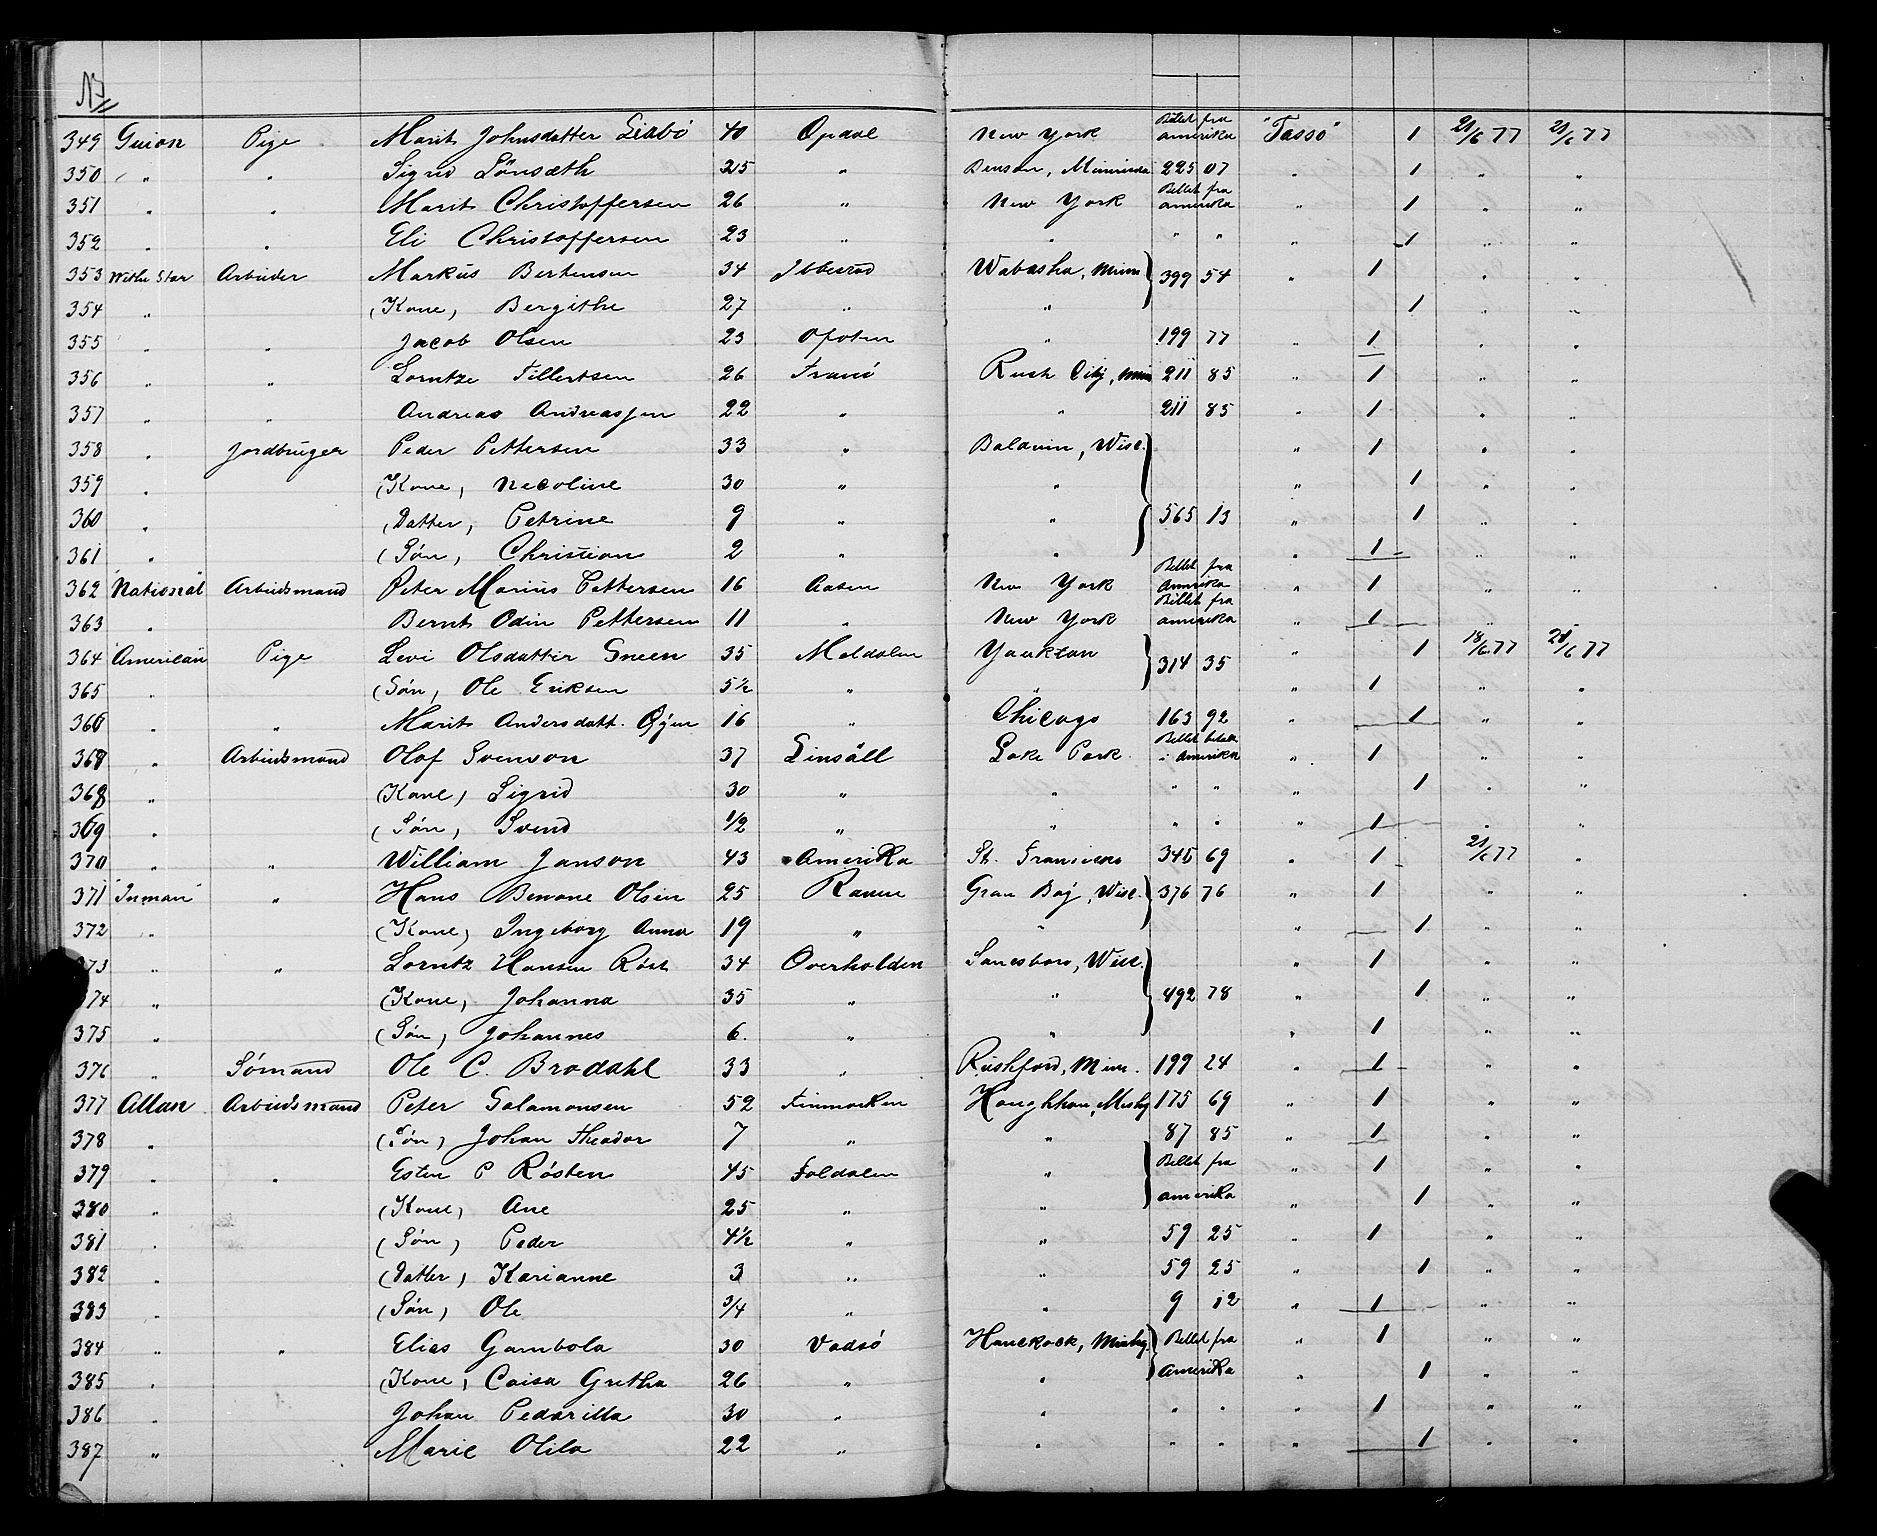 No
349 Guion Pige Marit Johnsdatter Liabö 40 Opdal New York Billet fra amerika "Tassö" 1 21/6 77 21/6 77
350 " " Sigrid Lönsæth 25 " Benson, 225 07 " 1 " "
351 " " Marit Christoffersen 26 " New York Billet fra amerika " 1 " "
352 " " Eli Christoffersen 23 " " " " " 1 " "
353 Withe Star Arbeider Markus Berhensen 34 Ibbestad Wabasha, Minn 399 54 " 1 " "
354 " (Kone, Bergithe 27 " " 1 " "
355 " " Jacob Olsen 23 Ofoten " 199 77 " 1 " "
356 " " Lorntze Tillertsen 26 Tranö Rush City, Minn 211 85 " 1 " "
357 " " Andreas Andreassen 22 " " 211 85 " 1 " "
358 " Jordbruger Peder Pettersen 33 " Baldwin, Wisc. " 1 " "
359 " (Kone, Necoline 30 " " " 1 " "
360 " (Datter, Petrine 9 " " 565 13 " 1 " "
361 " (Sön, Christian 2 " " " 1 " "
362 "National" Arbeidsmand Peter Marius Pettersen 16 Aasen New York Billet fra Amerika " 1 " "
363 " Bernt Odin Pettersen 11 " New York Billet fra amerika " 1 " "
364 "American" Pige Levi Olsdatter Sneen 35 Meldalen Yankton 314 35 " 1 18/6 77 21/6 77
365 " (Sön, Ole Eriksen 5½ " " " 1 " "
366 " " Marit Andersdatt. 16 " Chicago 163 92 " 1 " "
367 " Arbeidsmand Olof Svenson 37 Linsäll Lake Park Billet betalt i Amerika " 1 " "
368 " (Kone) Sigrid 30 " " " " " 1 " "
369 " (Sön, Svend 1/2 " " " " " 1 " "
370 " " William Janson 43 Amerika St. Fransisco 345 69 " 1 21/6 77 "
371 "Inman" " Hans Benone Olsen 25 Ranen Gran Baj, Wisc. 376 76 " 1 " "
372 " (Kone) Ingeborg Anna 19 " " " 1 " "
373 " " Lorntz Hansen Röst 34 Overhalden Wisc. " 1 " "
374 " (Kone, Johanna 35 " " 492 78 " 1 " "
375 " (Sön, Johannes 6. " " " 1 " "
376 " Sömand Ole C. Brodahl 33 " Rushford, Minn. 199 24 " 1 " "
377 Allan Arbeidsmand Peter Salamonsen 52 Finmarken Houghhon, Mishg 175 69 " 1 " "
378 " (Sön) Johan Theador 7 " " 87 85 " 1 " "
379 " " Esten P Rösten 45 Foldalen " Billet fra " 1 " "
380 " (Kone) Ane 25 " " amerika " 1 " "
381 " (Sön) Peder 4½ " " 59 25 " 1 " "
382 " (Datter) Karianne 3 " " 59 25 " 1 " "
383 " (Sön) Ole 3/4 " " 9 12 " 1 " "
384 " " Elias Gambola 30 Vadsö Hanckock, Mishg Billet fra " 1 " "
385 " (Kone, Caisa Gretha 26 " " Amerika " 1 " "
386 " Johan Pedarilla 30 " " " " " 1 " "
387 " Marie Olila 22 " " " " " 1 " "